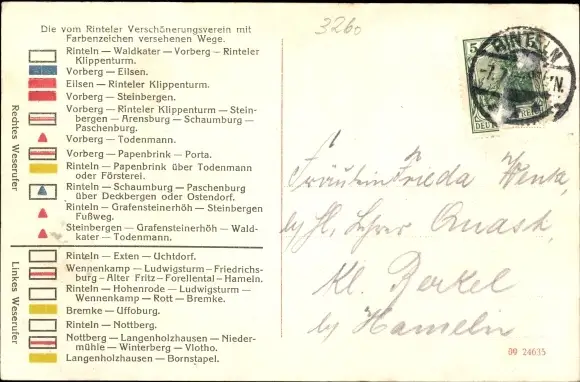 Die vom Rinteler Verschönerungsverein mit
Farbenzeichen versehenen Wege.
Rechtes Weserufer
Rinteln — Waldkater — Vorberg — Rinteler
Klippenturm.
Vorberg — Eilsen.
Eilsen — Rinteler Klippenturm.
Vorberg — Steinbergen.
Vorberg — Rinteler Klippenturm — Stein-
bergen — Arensburg — Schaumburg —
Paschenburg.
Vorberg — Todenmann.
Vorberg — Papenbrink — Porta.
Rinteln — Papenbrink über Todenmann
oder Försterei.
Rinteln — Schaumburg — Paschenburg
über Deckbergen oder Ostendorf.
Rinteln — Grafensteinerhöh — Steinbergen
Fußweg.
Steinbergen — Grafensteinerhöh — Wald-
kater — Todenmann.
Linkes Weserufer
Rinteln — Exten — Uchtdorf.
Wennenkamp — Ludwigsturm — Friedrichs-
burg — Alter Fritz — Forellental — Hameln.
Rinteln — Hohenrode — Ludwigsturm —
Wennenkamp — Rott — Bremke.
Bremke — Uffoburg.
Rinteln — Nottberg.
Nottberg — Langenholzhausen — Nieder-
mühle — Winterberg — Vlotho.
Langenholzhausen — Bornstapel.
3260
RINTELN
5
Fräulein Frieda
by H. Lehrer Quast,
Kl. Berkel
by Hameln
09 24635